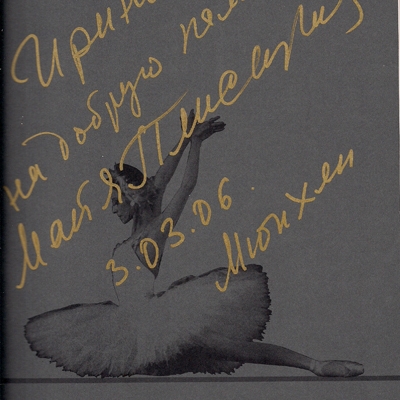 Ирин
на добрую пам
Майя Плисецкая
3.03.06.
Мюнхен